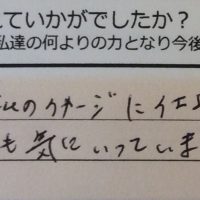 れていかがでしたか？
私達の何よりの力となり今後
のイメージに仕
も気にいっていま